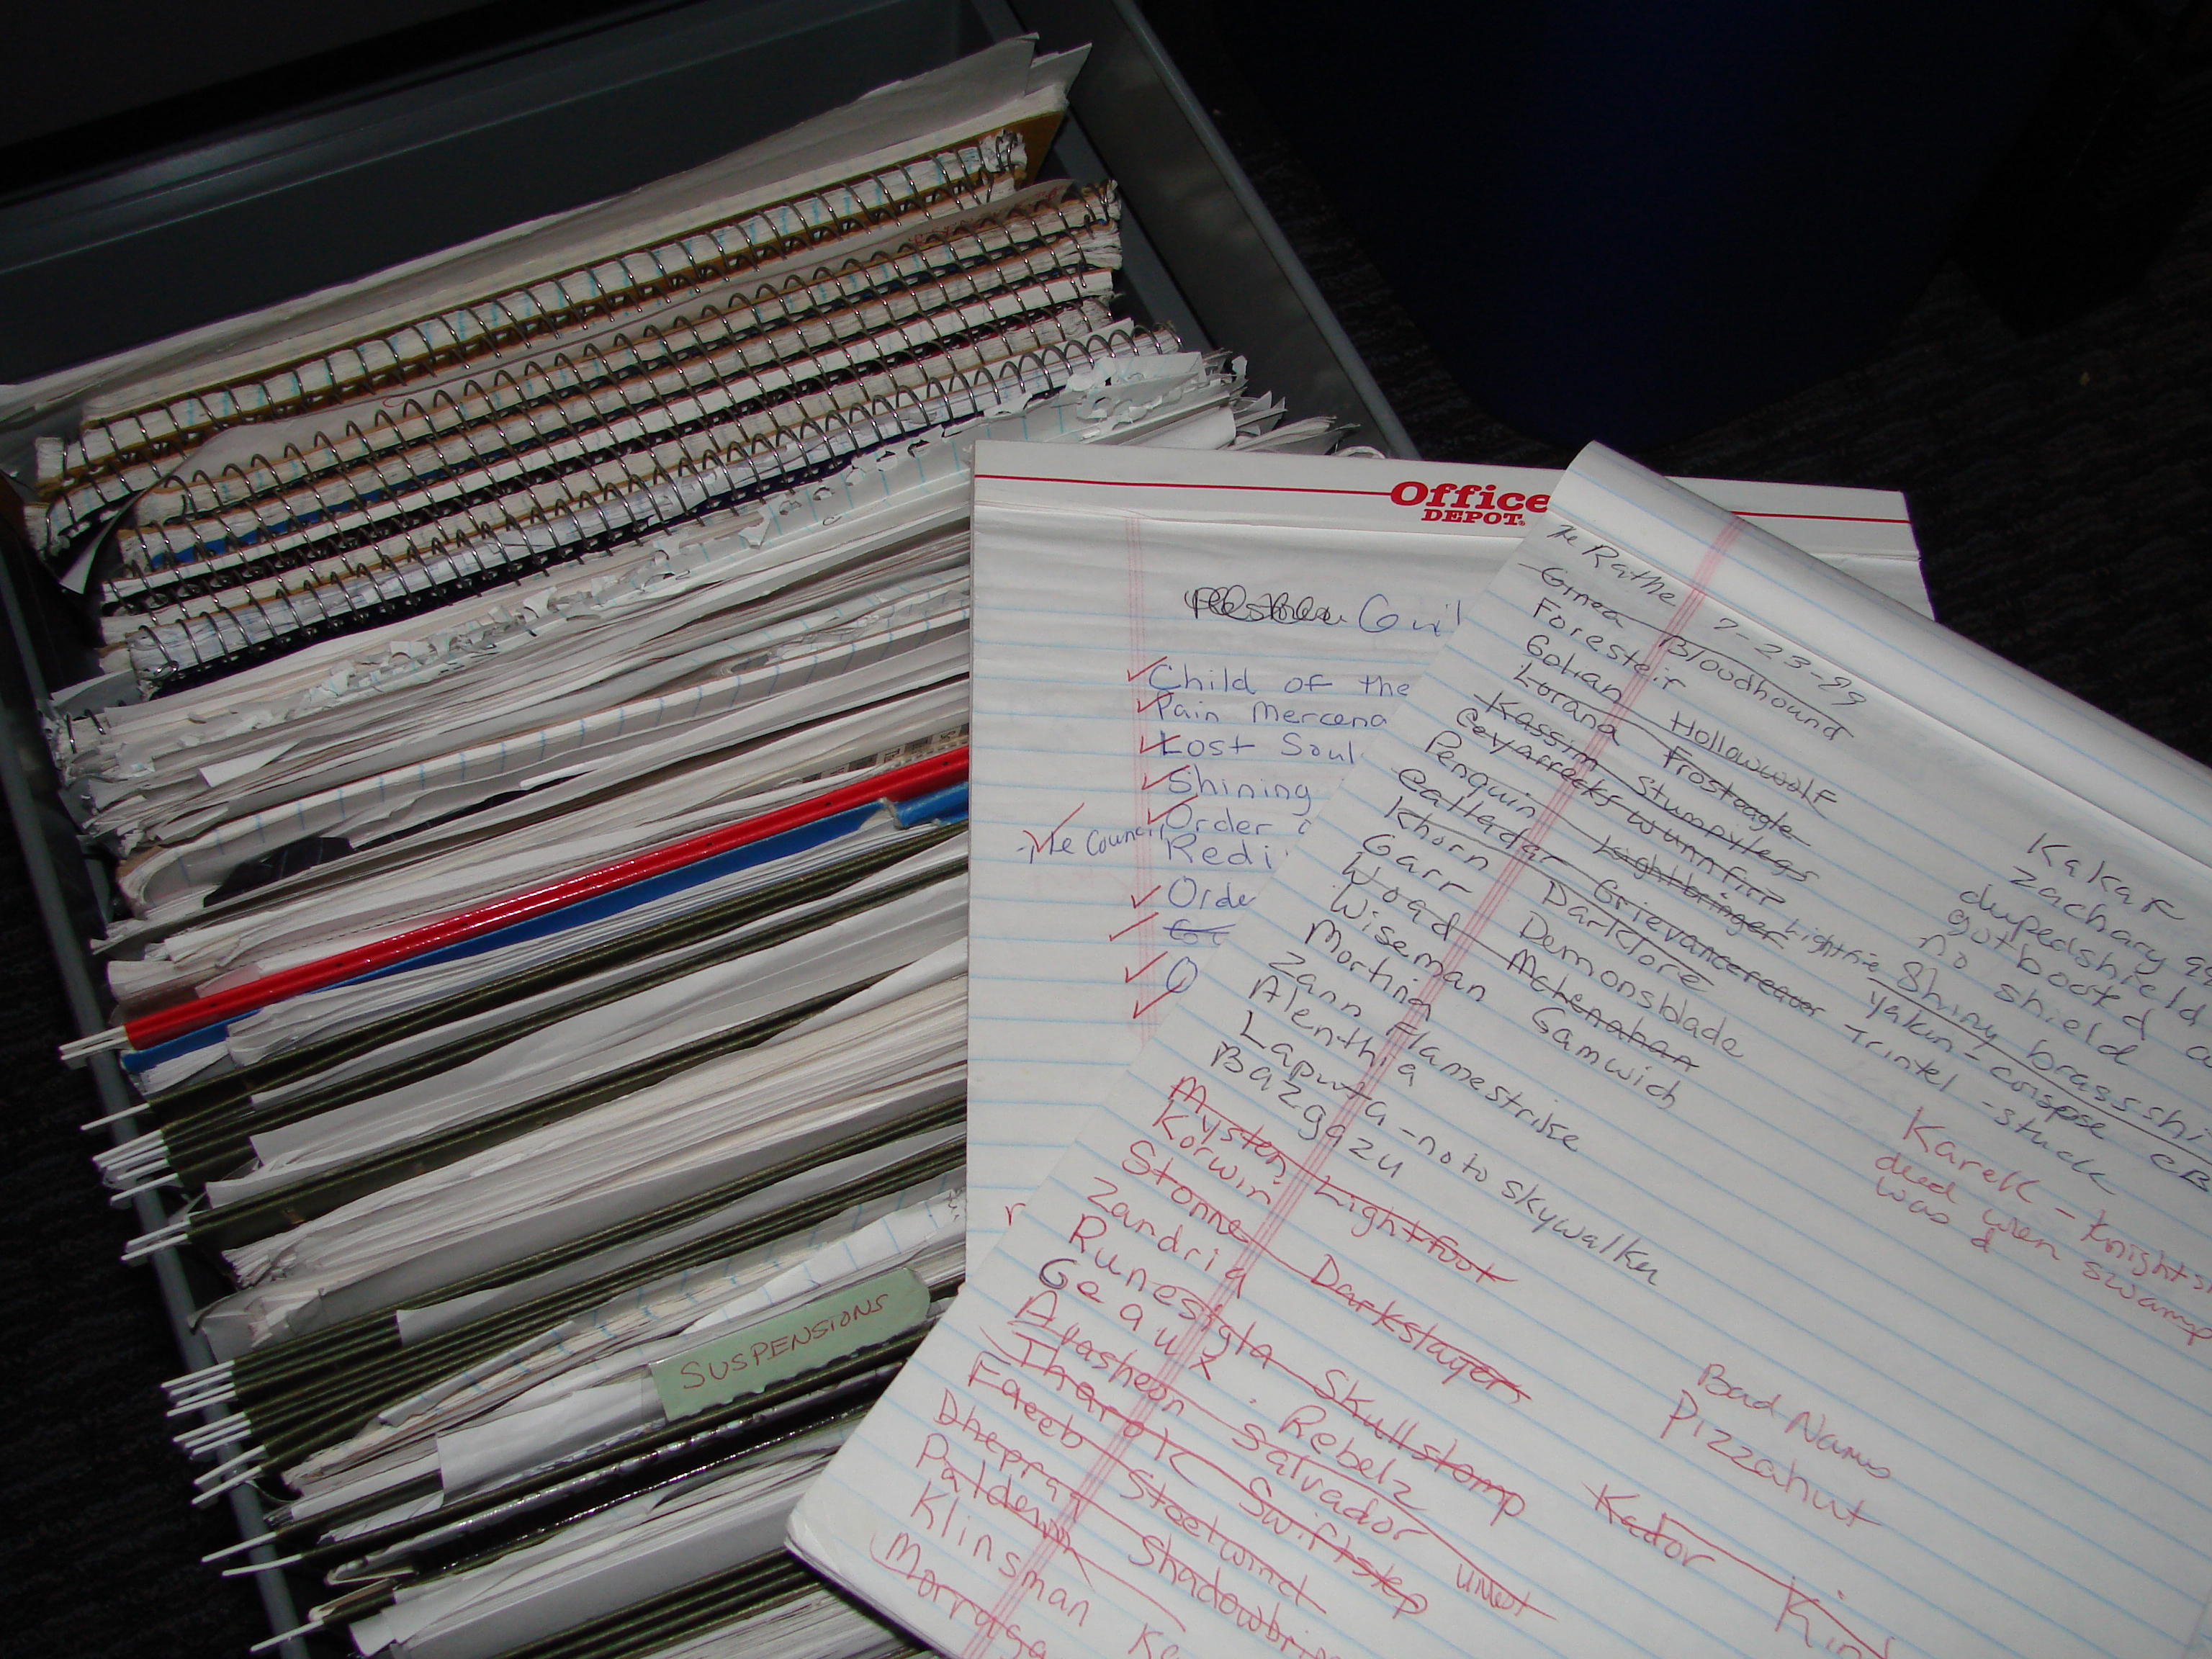 Office
DEPOT
Guil
Child of the
Pain Mercena
Lost Soul
Shining
Order o
The Council
Redi
Orde
O
The Rathe 7-23-99
Ginea Bloodhound
Foresteir
Gohan Hollowwolf
Lorana Frosteagle
Kassim Stumpylegs
Penguin Lightbringer
Grievancereaver - Trintel - stuck
Khorn Darklore
Garr Demonsblade
Woad Mctenahan
Wiseman Gamwich
Morting
Zann Flamestrike
Alenthia
Laputa - no to skywalker
Bazgazu
Mysten Lightfoot
Korwin
Stonne Darkslayer
Zandria
Runesigla Skullstomp
Geaux Rebelz
Arasheon Salvador
Tharok Swiftstep
Faeeb Steelwind
Dhepra Shadowbri
Paldewn
Klinsman Ka
Morraga
Kakar
Zachary
duped shield
got booted
no shield
Shiny brass shi
yakun - corpse
Karek - Knights
died when swamp
was d
Bad Names
Pizzahut
Kador Kin
SUSPENSIONS